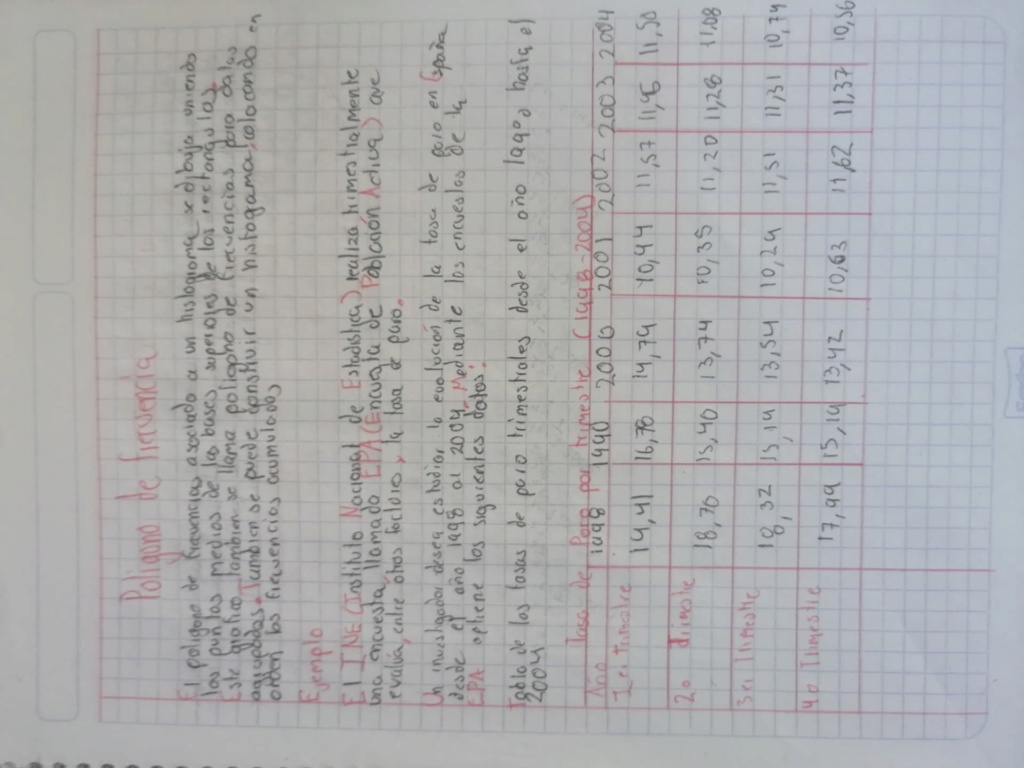 Poligono de frecuencia
El poligono de frecuencias asociado a un histograma se dibuja uniendo
los puntos medios de las bases superiores de los rectangulos.
Este grafico tambien se llama poligono de frecuencias para datos
agrupados. Tambien se puede construir un histograma colocando en
orden las frecuencias acumuladas
Ejemplo
El INE (Instituto Nacional de Estadística) realiza trimestralmente
una encuesta llamada EPA (Encuesta de Población Activa) que
evalúa, entre otros factores, la tasa de paro.
Un investigador desea estudiar la evolución de la tasa de paro en España
desde el año 1998 al 2004. Mediante las encuestas de la
EPA obtiene los siguientes datos:
Tabla de las tasas de paro trimestrales desde el año 1998 hasta el
2004
Tasa de Paro por trimestre (1998-2004)
Año 1998 1990 2000 2001 2002 2003 2004
1er trimestre 19,41 16,70 14,79 10,44 11,57 11,50
2o trimestre 18,70 15,40 13,74 10,35 11,20 11,28 11,08
3er trimestre 18,32 15,14 13,54 10,29 11,51 11,31 10,74
4o trimestre 17,99 15,19 13,42 10,63 11,62 11,37 10,56